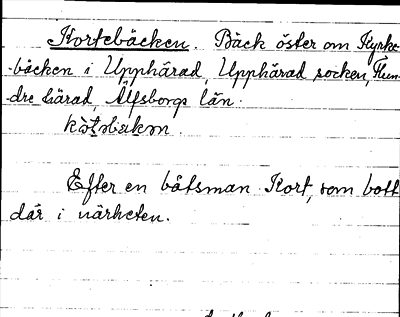 Kortebäcken. Bäck öster om Kyrke-
-bäcken i Upphärad, Upphärad socken, Flun-
dre härad, Älfsborgs län.
Efter en båtsman Kort, som bott
där i närheten.